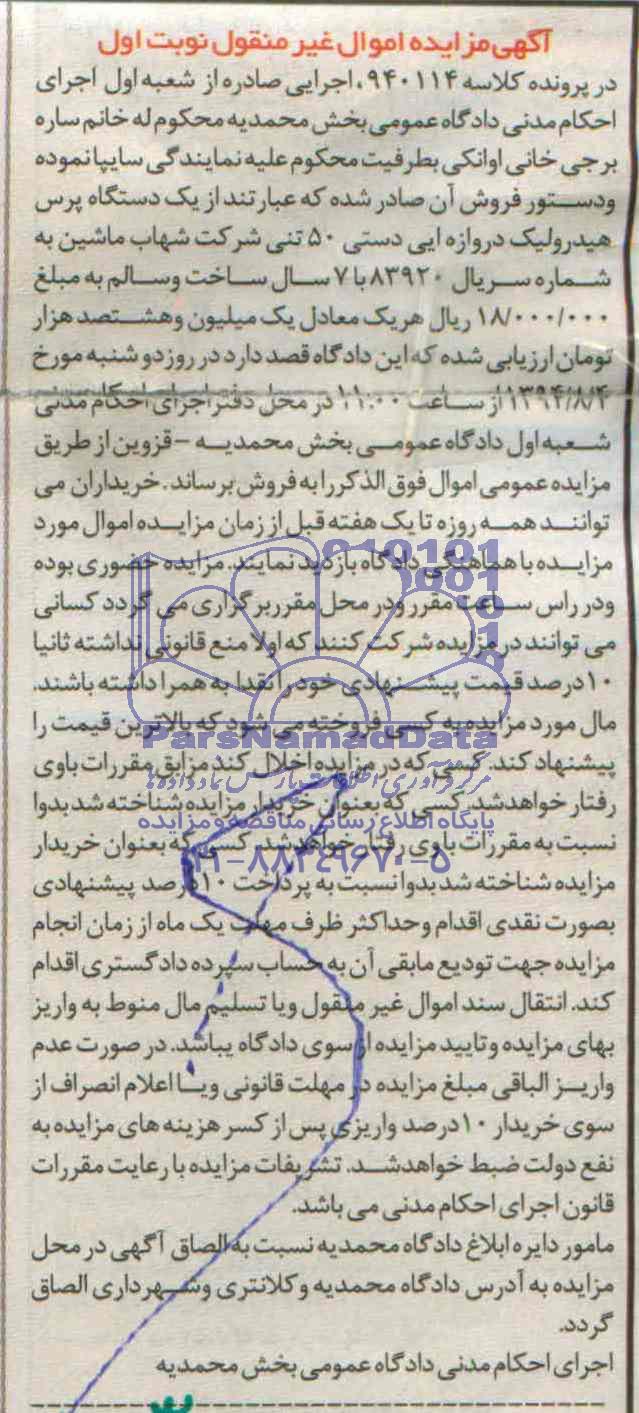 آگهی مزایده اموال غیر منقول نوبت اول
در پرونده کلاسه ۹۴۰۱۱۴، اجرایی صادره از شعبه اول اجرای
احکام مدنی دادگاه عمومی بخش محمدیه محکوم له خانم ساره
برجی خانی اوانکی بطرفیت محکوم علیه نمایندگی سایپا نموده
ودستور فروش آن صادر شده که عبارتند از یک دستگاه پرس
هیدرولیک دروازه ایی دستی ۵۰ تنی شرکت شهاب ماشین به
شماره سریال ۸۳۹۲۰ با ۷ سال ساخت وسالم به مبلغ
۱۸/۰۰۰/۰۰۰ ریال هریک معادل یک میلیون وهشتصد هزار
تومان ارزیابی شده که این دادگاه قصد دارد در روز دو شنبه مورخ
۱۳۹۴/۸/۴ از ساعت ۱۱:۰۰ در محل دفتر اجرای احکام مدنی
شعبه اول دادگاه عمومی بخش محمدیه – قزوین از طریق
مزایده عمومی اموال فوق الذکر را به فروش برساند. خریداران می
توانند همه روزه تا یک هفته قبل از زمان مزایده اموال مورد
مزایده با هماهنگی دادگاه بازدید نمایند. مزایده حضوری بوده
ودر راس ساعت مقرر ودر محل مقرر برگزاری می گردد کسانی
می توانند در مزایده شرکت کنند که اولا منع قانونی نداشته ثانیا
۱۰ درصد قیمت پیشنهادی خود را نقدا به همرا داشته باشند.
مال مورد مزایده به کسی فروخته می شود که بالاترین قیمت را
پیشنهاد کند. کسی که در مزایده اخلال کند مزابق مقررات باوی
رفتار خواهدشد. کسی که بعنوان خریدار مزایده شناخته شد بدوا
نسبت به مقررات باوی رفتار خواهدشد. کسی که بعنوان خریدار
مزایده شناخته شد بدوا نسبت به پرداخت ۱۰ درصد پیشنهادی
بصورت نقدی اقدام وحداکثر ظرف مهلت یک ماه از زمان انجام
مزایده جهت تودیع مابقی آن به حساب سپرده دادگستری اقدام
کند. انتقال سند اموال غیر منقول ویا تسلیم مال منوط به واریز
بهای مزایده وتایید مزایده از سوی دادگاه یباشد. در صورت عدم
واریز الباقی مبلغ مزایده در مهلت قانونی ویا اعلام انصراف از
سوی خریدار ۱۰ درصد واریزی پس از کسر هزینه های مزایده به
نفع دولت ضبط خواهدشد. تشریفات مزایده با رعایت مقررات
قانون اجرای احکام مدنی می باشد.
مامور دایره ابلاغ دادگاه محمدیه نسبت به الصاق آگهی در محل
مزایده به آدرس دادگاه محمدیه وکلانتری وشهرداری الصاق
گردد.
اجرای احکام مدنی دادگاه عمومی بخش محمدیه
ParsNamadData
مرکز فرآوری اطلاعات پارس نماد داده ها
پایگاه اطلاع رسانی مناقصه و مزایده
۰۲۱-۸۸۳۴۹۶۷۰-۵